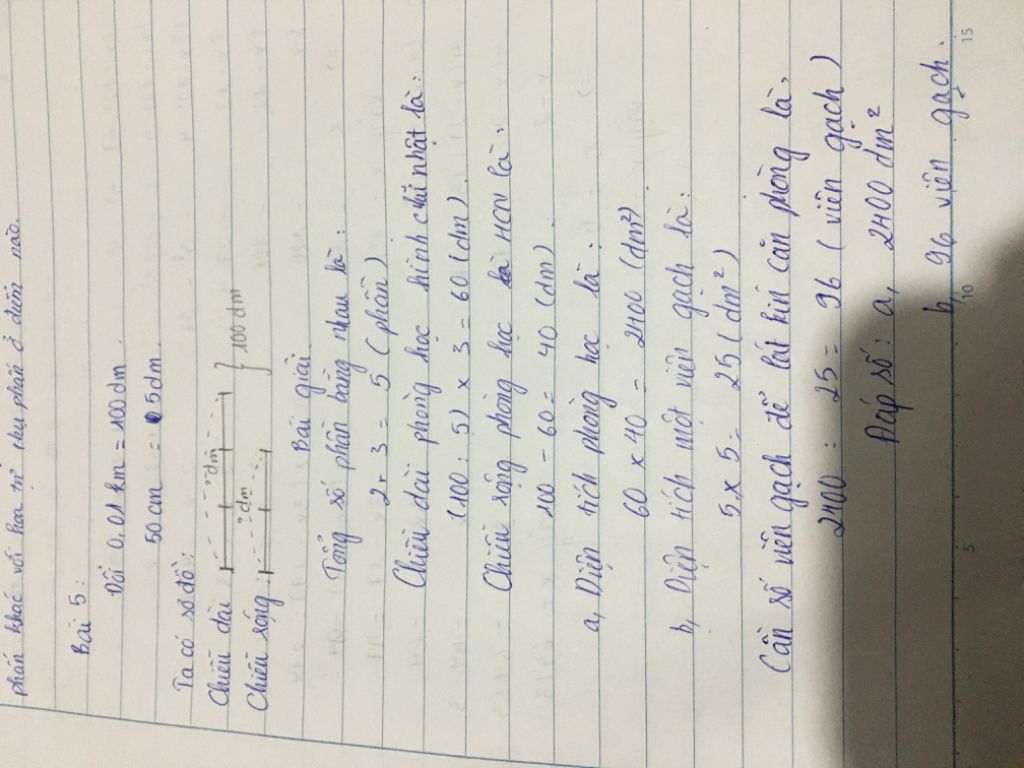 phấn khác với hoa tự thụ phấn ở điểm nào.
Bài 5:
Đổi 0,01 km = 100 dm.
50 cm = 5 dm
Ta có sơ đồ:
Chiều dài ?dm
Chiều rộng ?dm } 100 dm
Bài giải
Tổng số phần bằng nhau là:
2 + 3 = 5 (phần)
Chiều dài phòng học hình chữ nhật là:
(100 : 5) x 3 = 60 (dm)
Chiều rộng phòng học HCN là:
100 - 60 = 40 (dm)
a, Diện tích phòng học là:
60 x 40 = 2400 (dm²)
b, Diện tích một viên gạch là:
5 x 5 = 25 (dm²)
Cần số viên gạch để lát kín căn phòng là,
2400 : 25 = 96 (viên gạch)
Đáp số: a, 2400 dm²
b, 96 viên gạch.
5 10 15